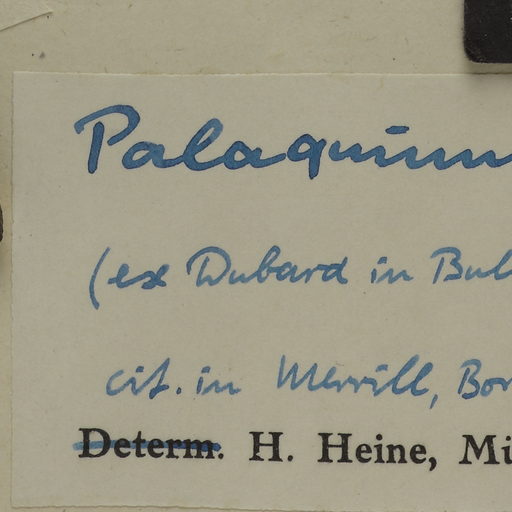 Palaquium
(ex Dubard in Bul
cit. in Merrill, Bor
Determ. H. Heine, Mü